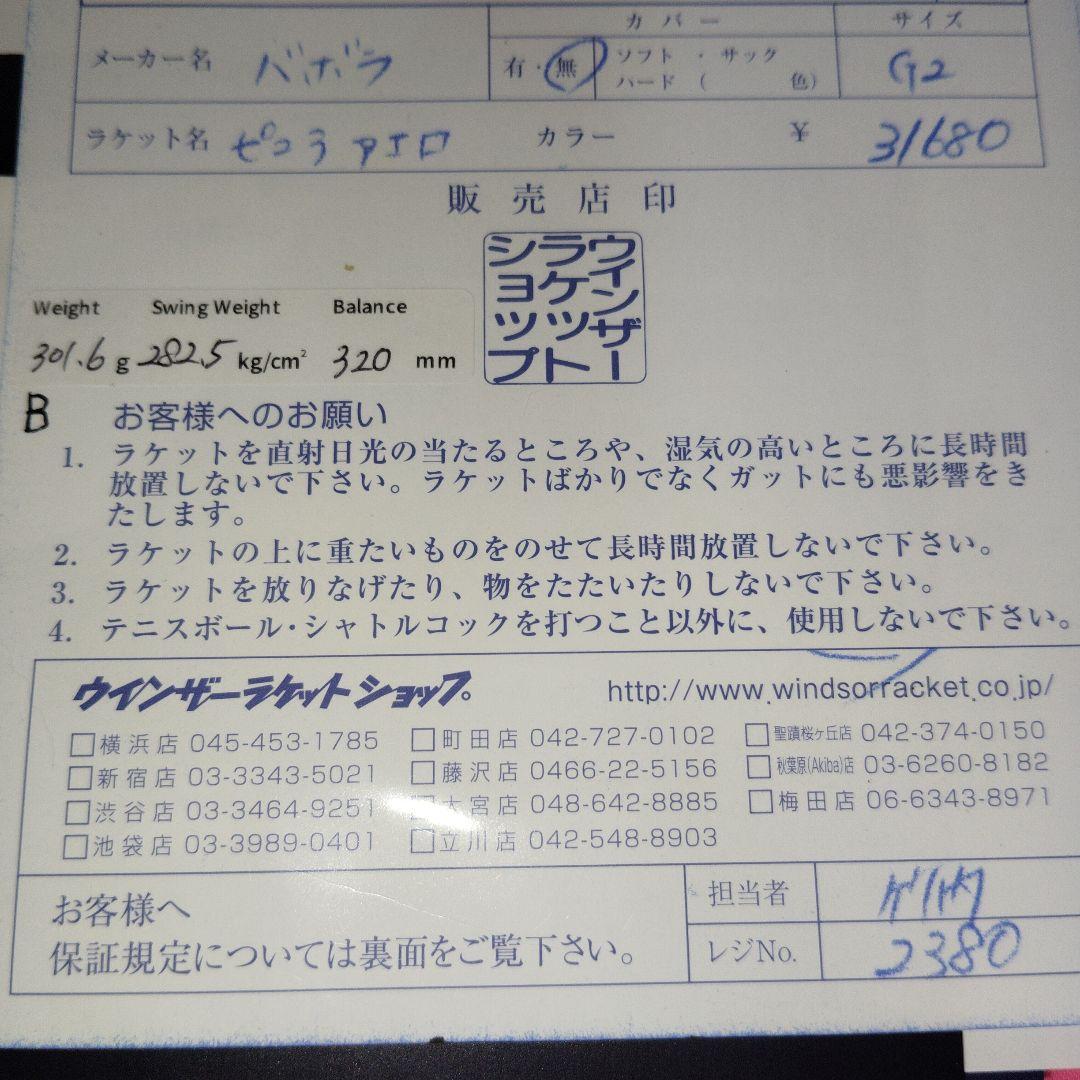 カバー サイズ
メーカー名 バボラ 有・無 ソフト・サック G2
ハード( 色)
ラケット名 ピュラ アエロ カラー ¥ 31680
販売店印
ウインザー
ラケット
ショップ
Weight Swing Weight Balance
301.6 g 282.5 kg/cm² 320 mm
B お客様へのお願い
1. ラケットを直射日光の当たるところや、湿気の高いところに長時間
放置しないで下さい。ラケットばかりでなくガットにも悪影響をき
たします。
2. ラケットの上に重たいものをのせて長時間放置しないで下さい。
3. ラケットを放りなげたり、物をたたいたりしないで下さい。
4. テニスボール・シャトルコックを打つこと以外に、使用しないで下さい。
ウインザーラケットショップ。 http://www.windsorracket.co.jp/
横浜店 045-453-1785 町田店 042-727-0102 聖蹟桜ヶ丘店 042-374-0150
新宿店 03-3343-5021 藤沢店 0466-22-5156 秋葉原(Akiba)店 03-6260-8182
渋谷店 03-3464-9251 大宮店 048-642-8885 梅田店 06-6343-8971
池袋店 03-3989-0401 立川店 042-548-8903
お客様へ 担当者
保証規定については裏面をご覧下さい。 レジNo. 2380